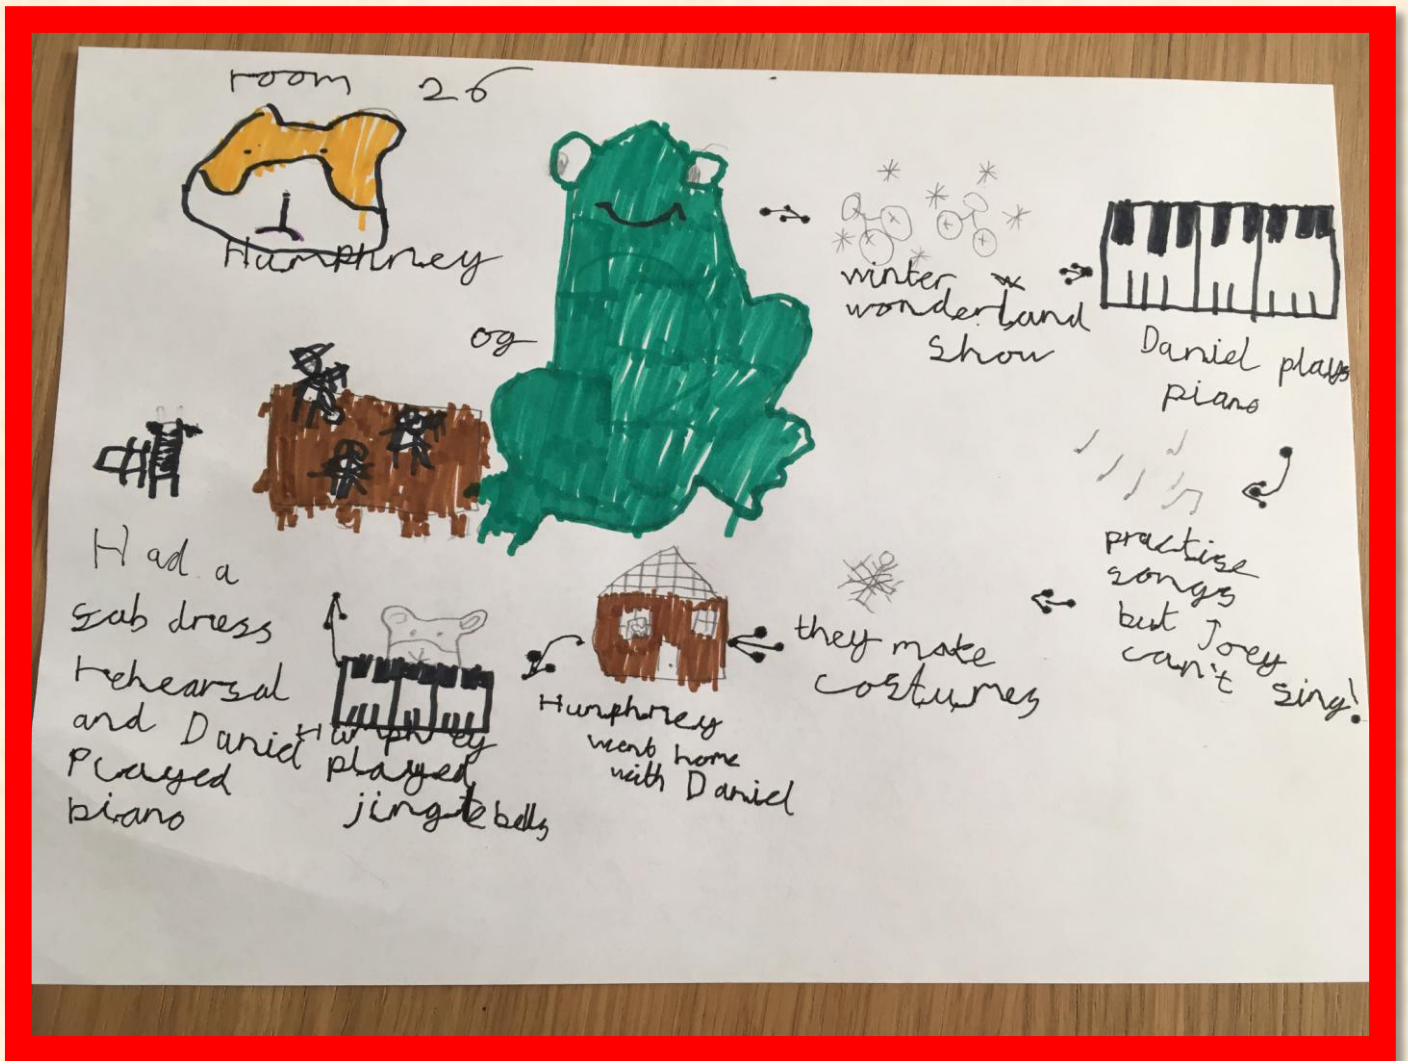 room 26
Humphrey
og
winter
wonderland
show
Daniel plays
piano
practise
songs
but Joey
can't sing!
they make
costumes
Humphrey
went home
with Daniel
Humphrey
played
jingle bells
Had a
sab dress
rehearsal
and Daniel
Played
piano